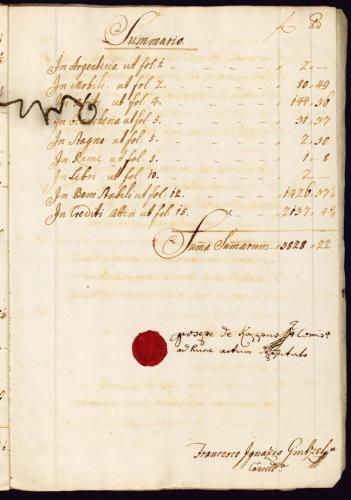 Summario.
In Argenteria ut fol. 1. 2. —
In Mobili ut fol. 2. 80. 49
ut fol. 4. 144. 36
ut fol. 5. 31. 37
In Stagno ut fol. 5. 2. 30
In Rame ut fol. 5. 1. 8
In Libri ut fol. 10. 2 —
In Beni Stabili ut fol. 12. 1426. 37½
In Crediti Attivi ut fol. 15. 2137. 4½
Suma Sumarum 3828. 22
de Comiso
ad hunc actum
Francesco Ignazio
Cancell